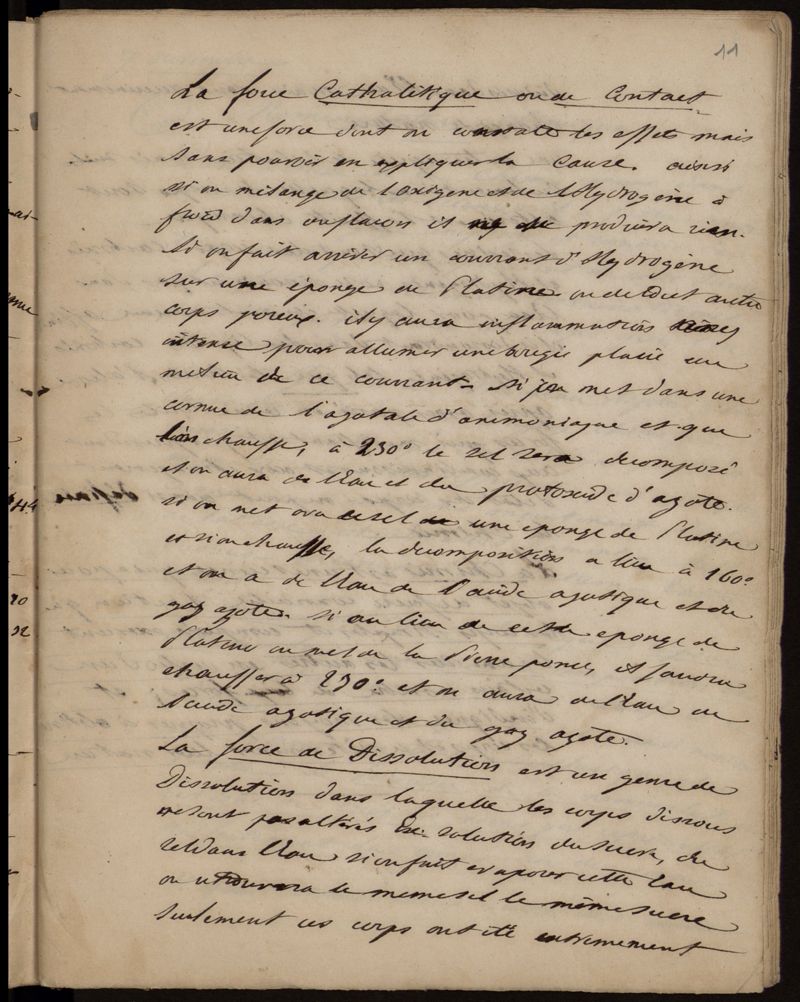 11
La force Cathalitique ou de Contact
est une force dont on constate les effets mais
sans pouvoir en appliquer la Cause. ainsi
si on mélange de l'oxigène et de l'Hydrogène à
froid dans un flacon il ne se produira rien.
Si on fait arriver un courrant d'Hydrogène
sur une éponge de Platine ou de tout autre
corps poreux. il y aura inflammation assez
intense pour allumer une bougie placée au
milieu de ce courrant. Si on met dans une
cornue de l'azotate d'ammoniaque et que
l'on chauffe, à 230° le sel sera decomposé
et on aura de l'Eau et du protoxide d'azote.
si on met avec ce sel une eponge de Platine
et si on chauffe, la decomposition a lieu à 160°
et on a de l'Eau de l'acide azotique et du
gaz azote. si au lieu de cette eponge de
Platine on met de la Pierre ponce, il faudra
chauffer à 230° et on aura de l'Eau de
l'acide azotique et du gaz azote.
La force de Dissolution est un genre de
Dissolution dans laquelle les corps dissous
ne sont pas altérés Ex: solution du sucre, du
sel dans l'Eau si on fait evaporer cette Eau
on retrouvera le meme sel le même sucre
seulement ces corps ont été
44
10